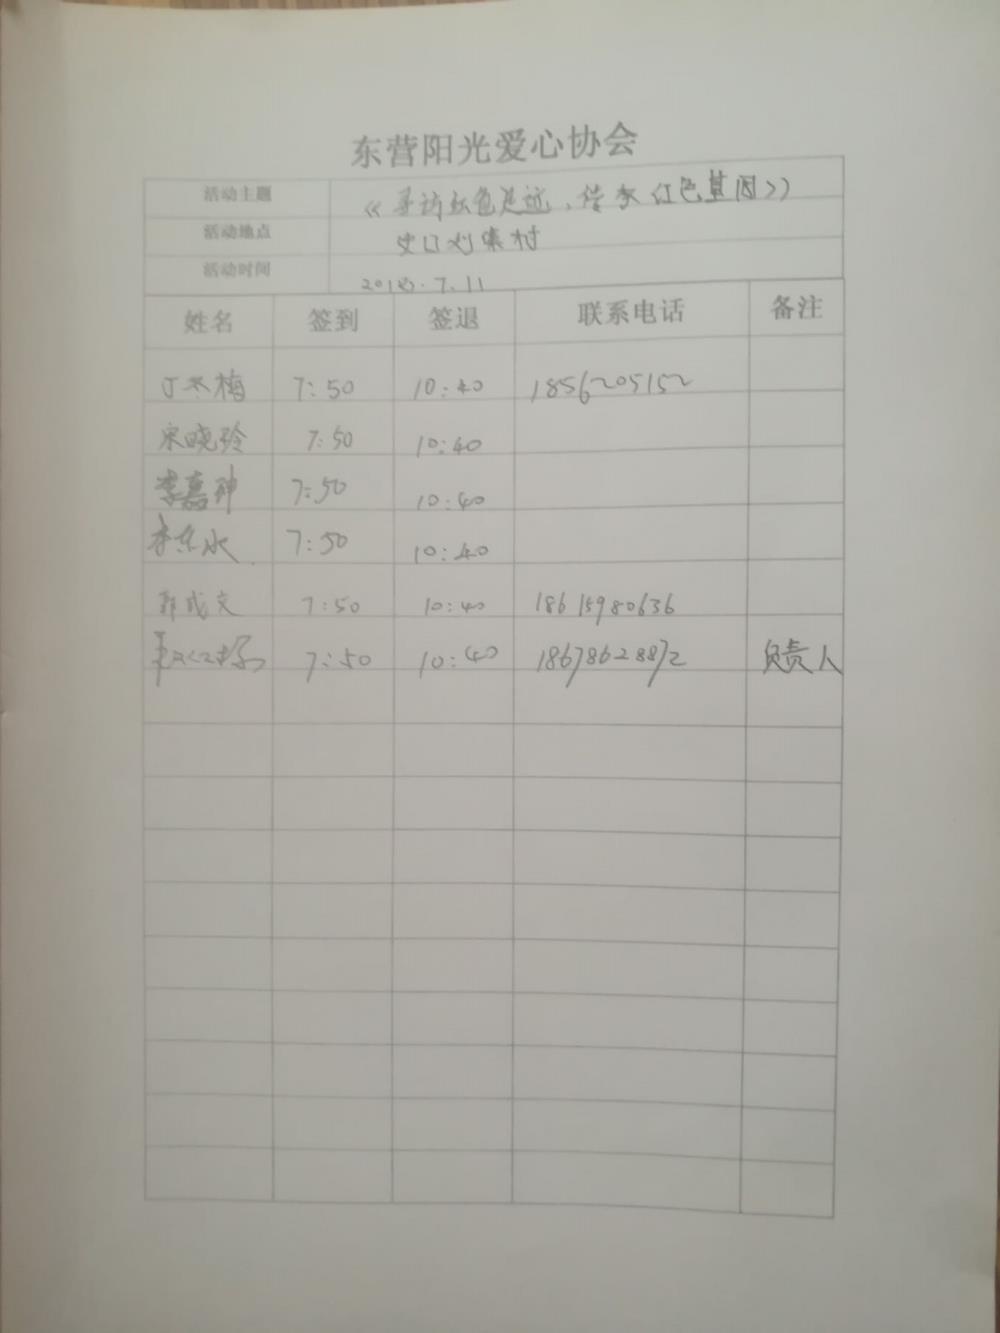 东营阳光爱心协会
活动主题 《寻访红色足迹、传承红色基因》
活动地点 史口刘集村
活动时间 2018.7.11
姓名 签到 签退 联系电话 备注
丁冬梅 7:50 10:40 18562205152
宋晓玲 7:50 10:40
李嘉珅 7:50 10:40
李东永 7:50 10:40
郭成文 7:50 10:40 18615980636
7:50 10:40 18678628872 负责人